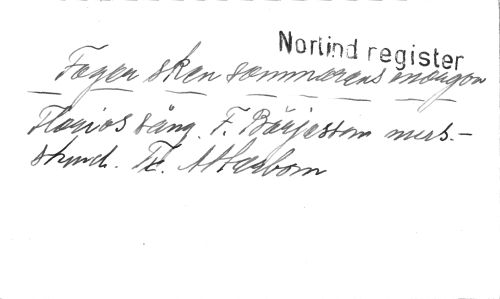 Norlind register
Fager sken sommarens morgon
Florios sång. F. Börjesson mus.-
stund. T. Atterbom